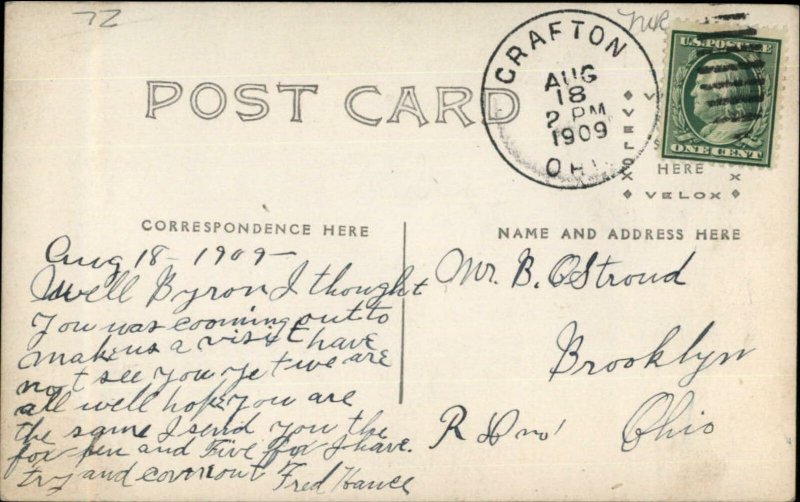 72
POST CARD
CRAFTON
AUG
18
2 PM
1909
OHIO
U.S. POSTAGE
ONE CENT
VELOX
HERE
VELOX
CORRESPONDENCE HERE
NAME AND ADDRESS HERE
Aug 18 - 1909 -
Well Byron I thought
you was cooming out to
make us a visit have
not see you yet we are
all well hope you are
the same I send you the
fox pen and Five fox I have.
try and come out Fred Hance
Mr. B. OStroud
Brooklyn
R D no 1
Ohio